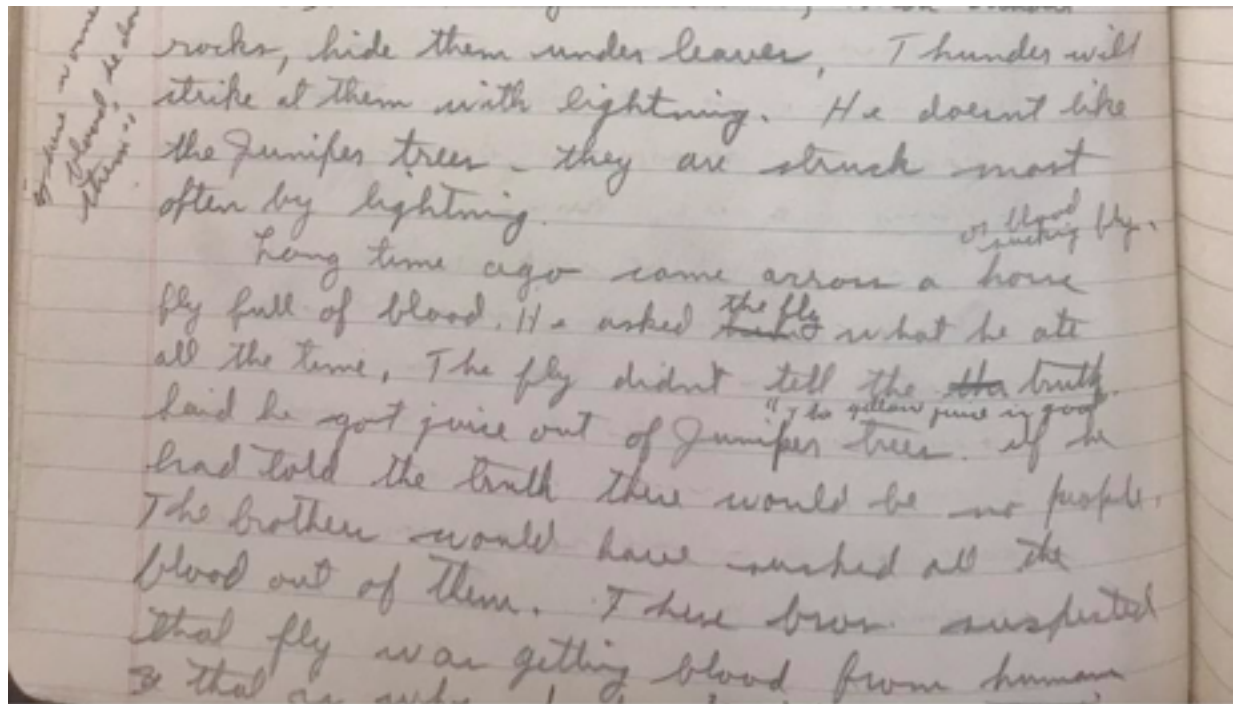 rocks, hide them under leaves, Thunder will
strike at them with lightning. He doesn't like
the Juniper trees - they are struck most
often by lightning.
or blood
sucking fly.
Long time ago came across a horse
fly full of blood. He asked the fly what he ate
all the time, The fly didn't tell the truth.
Said he got juice out of Juniper trees. if he
"The yellow juice is good
had told the truth there would be no people.
The brothers would have sucked all the
blood out of them. These bros. suspected
that fly was getting blood from humans
& that is why
blood, he
them"